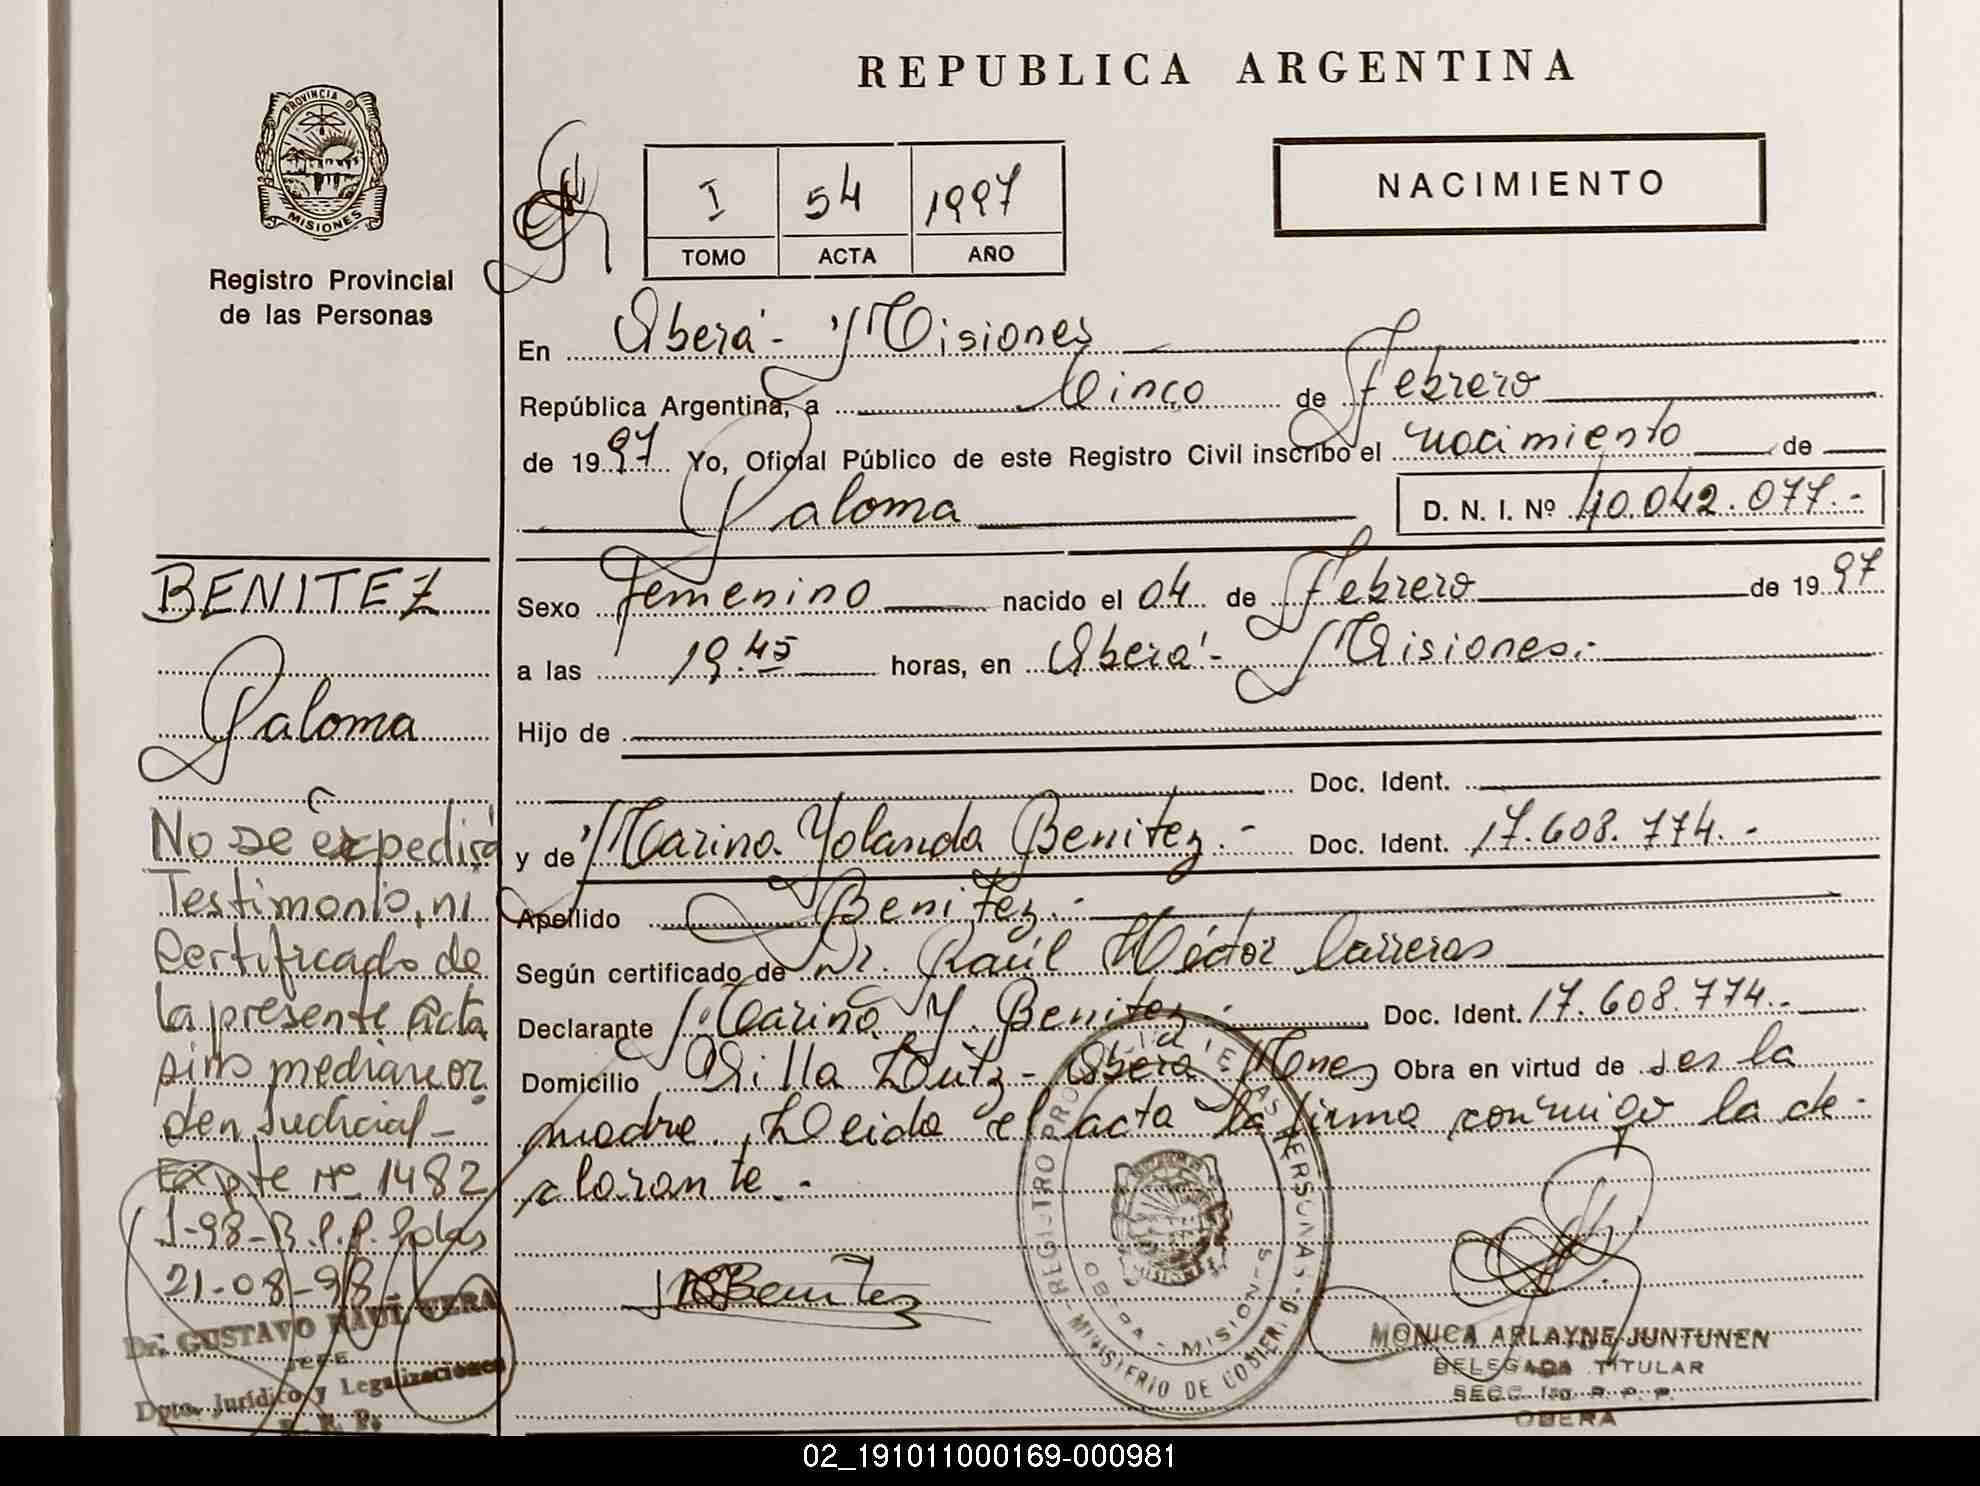 REPUBLICA ARGENTINA
PROVINCIA D
MISIONES
Registro Provincial
de las Personas
I 54 1997
TOMO ACTA AÑO
NACIMIENTO
En Oberá - Misiones
República Argentina, a Cinco de Febrero
de 1997 Yo, Oficial Público de este Registro Civil inscribo el nacimiento de
Paloma D. N. I. Nº 40.042.077.-
Sexo Femenino nacido el 04 de Febrero de 1997
a las 19.45 horas, en Oberá - Misiones.-
Hijo de
Doc. Ident.
y de Marina Yolanda Benitez.- Doc. Ident. 17.608.774.-
Apellido Benitez.-
Según certificado de Dr. Raúl Héctor Carreras
Declarante Marina Y. Benitez.- Doc. Ident. 17.608.774.-
Domicilio Villa Lutz - Oberá Mnes Obra en virtud de ser la
madre. Leida el acta la firma conmigo la de-
clarante.-
BENITEZ
Paloma
No se expedirá
Testimonio, ni
Certificado de
la presente Acta
sino mediante or
den Judicial -
Expte Nº 1482
-98-R.P.P. Pdas
21-08-98
Dr. GUSTAVO RAUL VERA
JEFE
Dpto. Jurídico y Legalizaciones
R. P. P.
MBenitez
REGISTRO PRO DE LAS PERSONAS
MINISTERIO DE GOBIERNO
OBERA - MISIONES
MONICA ARLAYNE JUNTUNEN
DELEGADA TITULAR
SECC. 1ra R. P. P.
OBERA
02_191011000169-000981